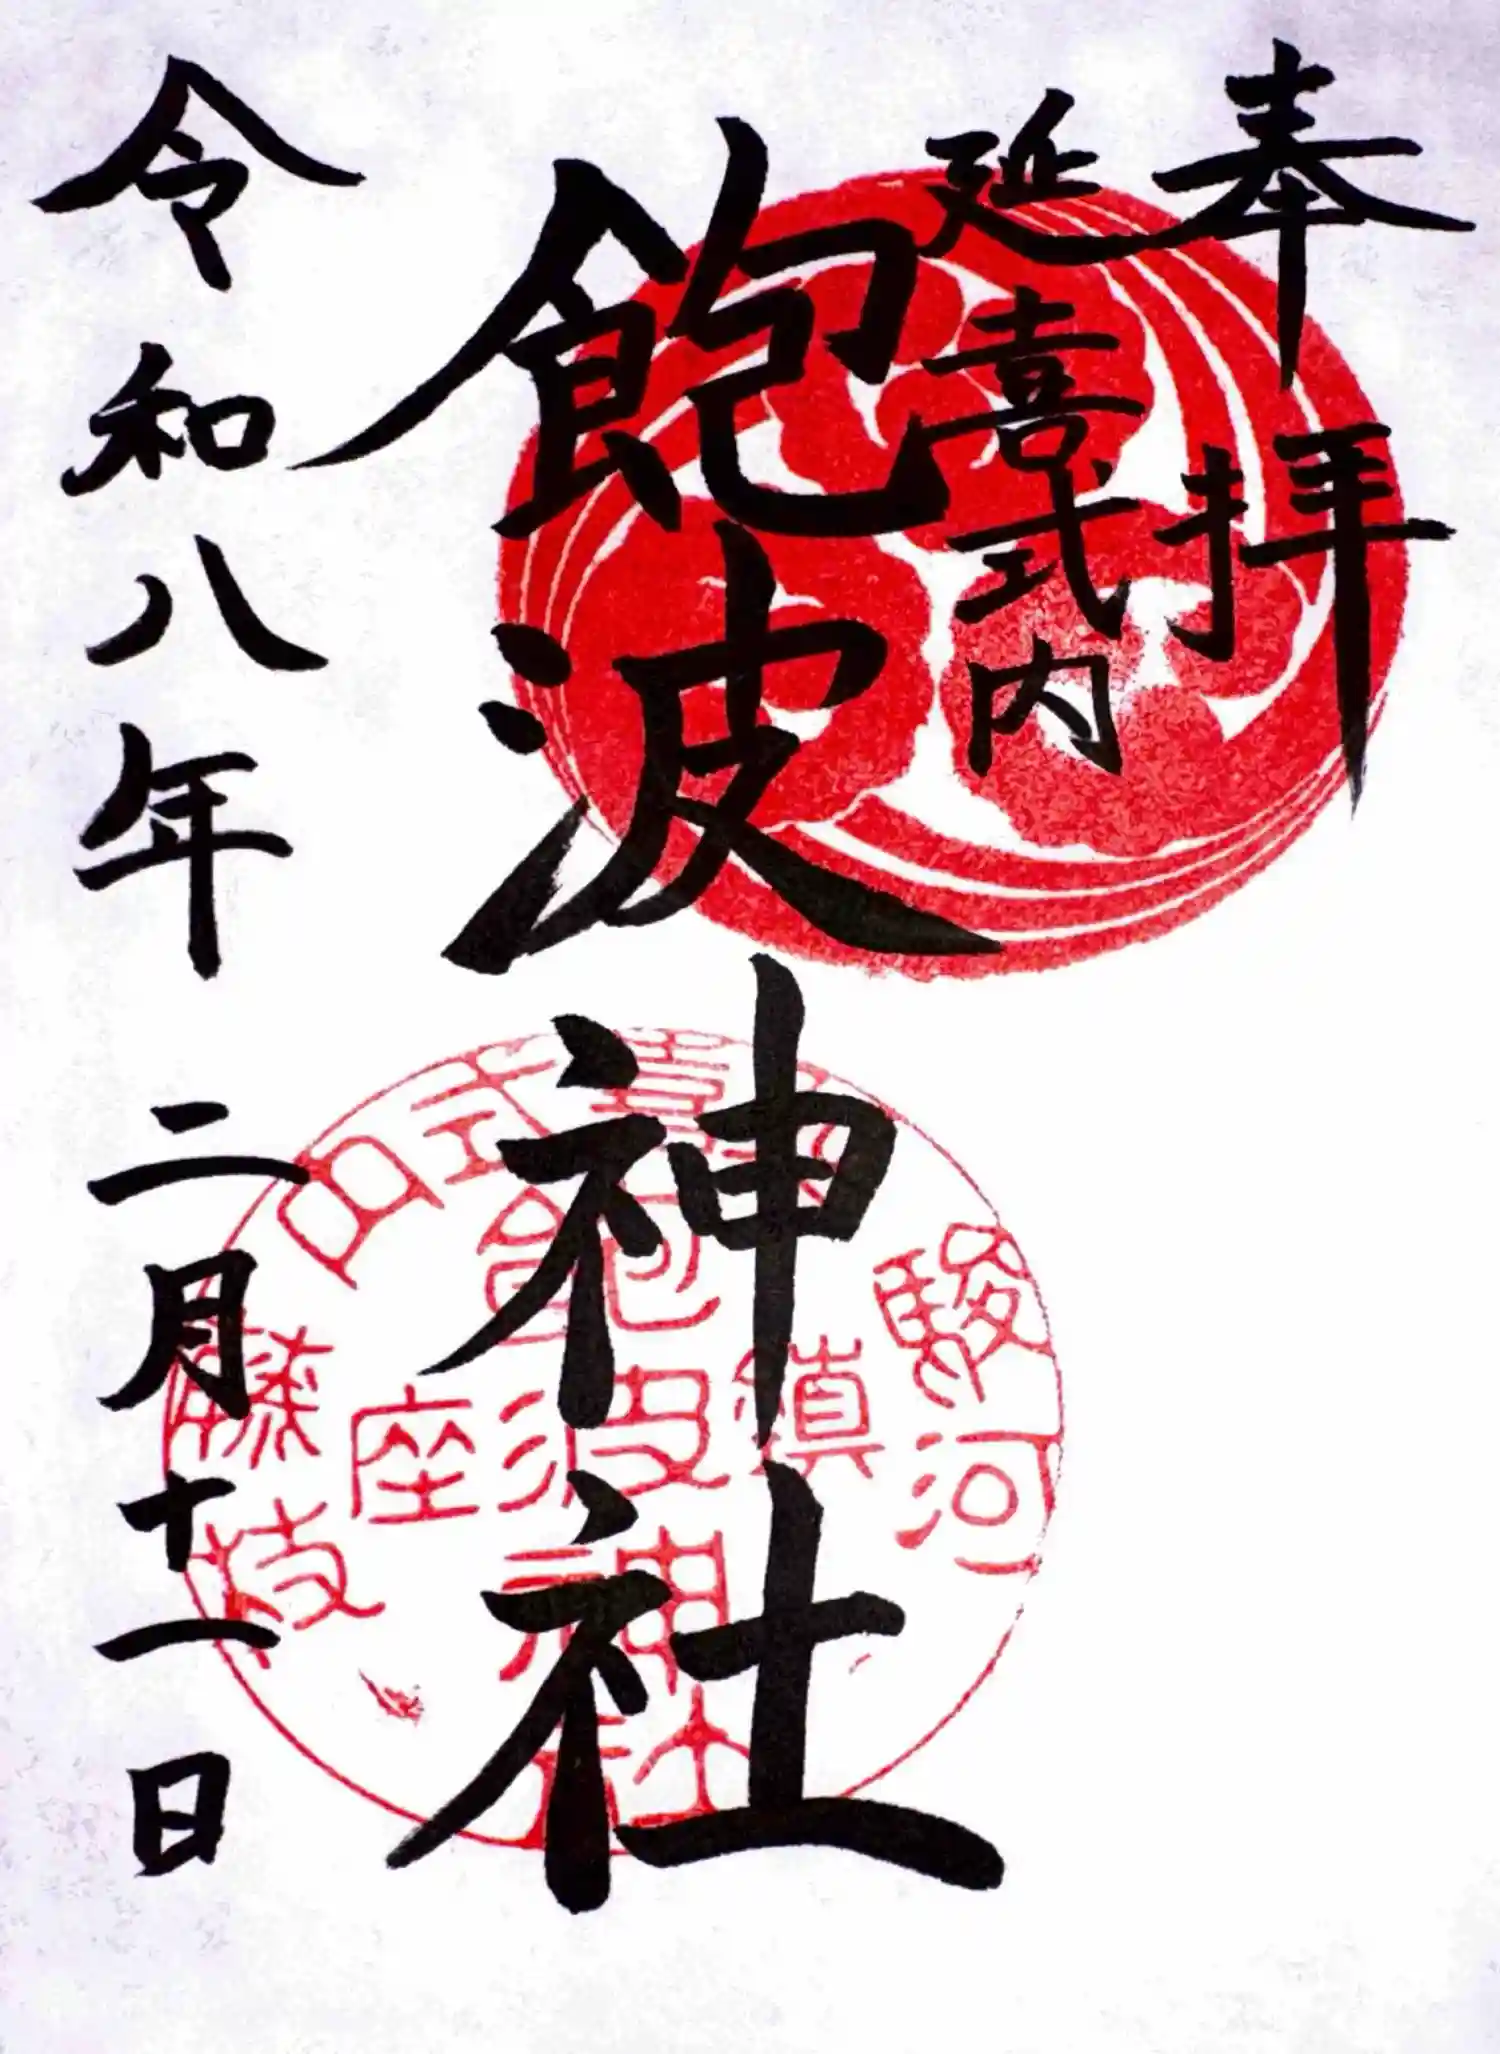 奉拝
延喜式内
飽波神社
令和八年二月十一日
駿河
延喜式内
藤枝
鎮座
飽波神社